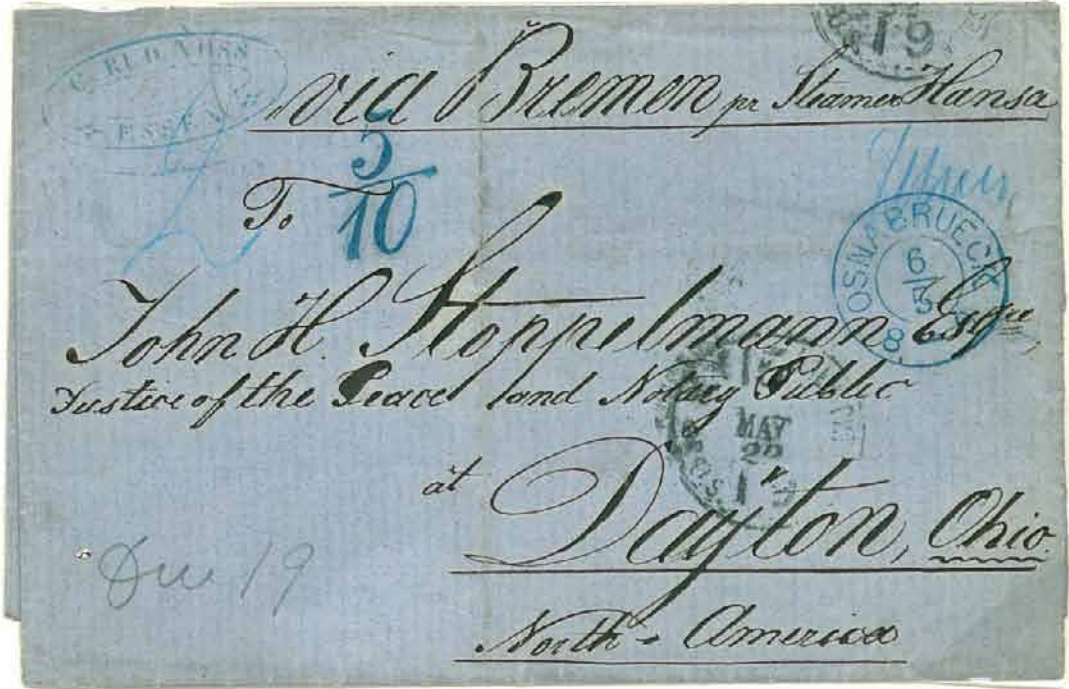 19
C. RUD. NOSS
ESSEN
via Bremen pr Steamer Hansa
5
10
To
OSNABRUECK
6
5
8
John H. Stoppelmann Esqre
Justice of the Peace and Notary Public
MAY
at
Dayton, Ohio.
Due 19
North - America